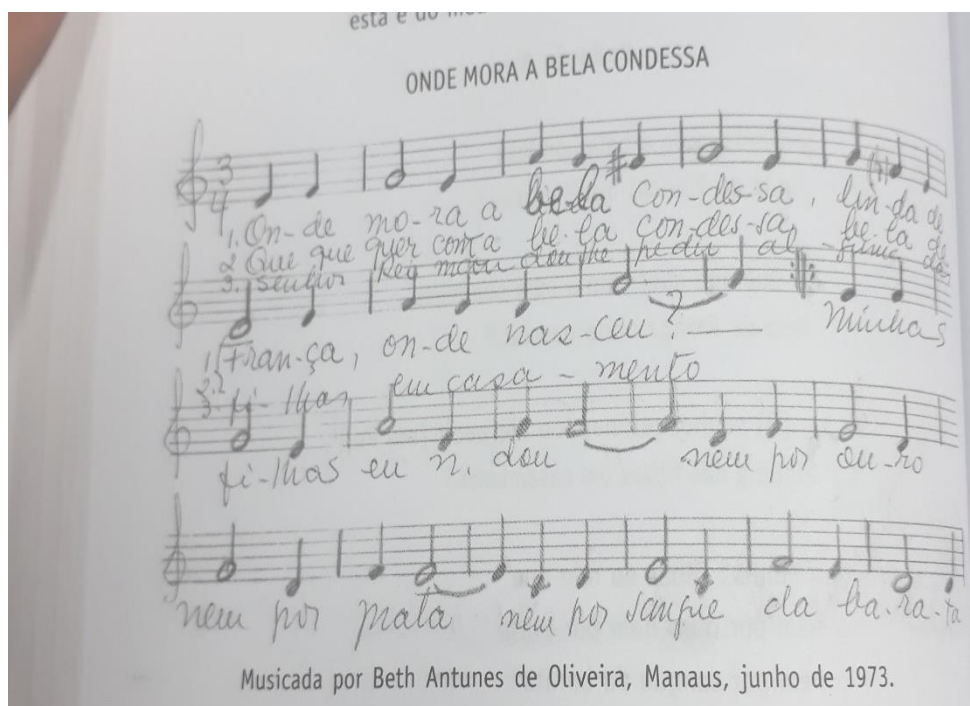 esta é do
ONDE MORA A BELA CONDESSA
3
4
1. On-de mo-ra a be-la con-des-sa, lin-da de
2. Que que quer com a be-la con-des-sa, be-la de
3. Senhor Rey mandou lhe pedir
1. Fran-ça, on-de nas-ceu? Minhas
2.
3. fi-lhas em casa-mento
fi-lhas eu n. dou nem por ou-ro
nem por prata nem por sangue da ba-ra-ta
Musicada por Beth Antunes de Oliveira, Manaus, junho de 1973.